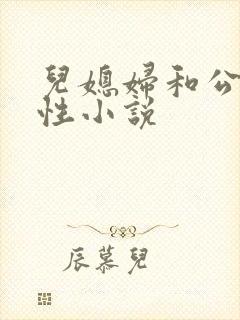 兒媳婦和公
性小說
辰慕兒